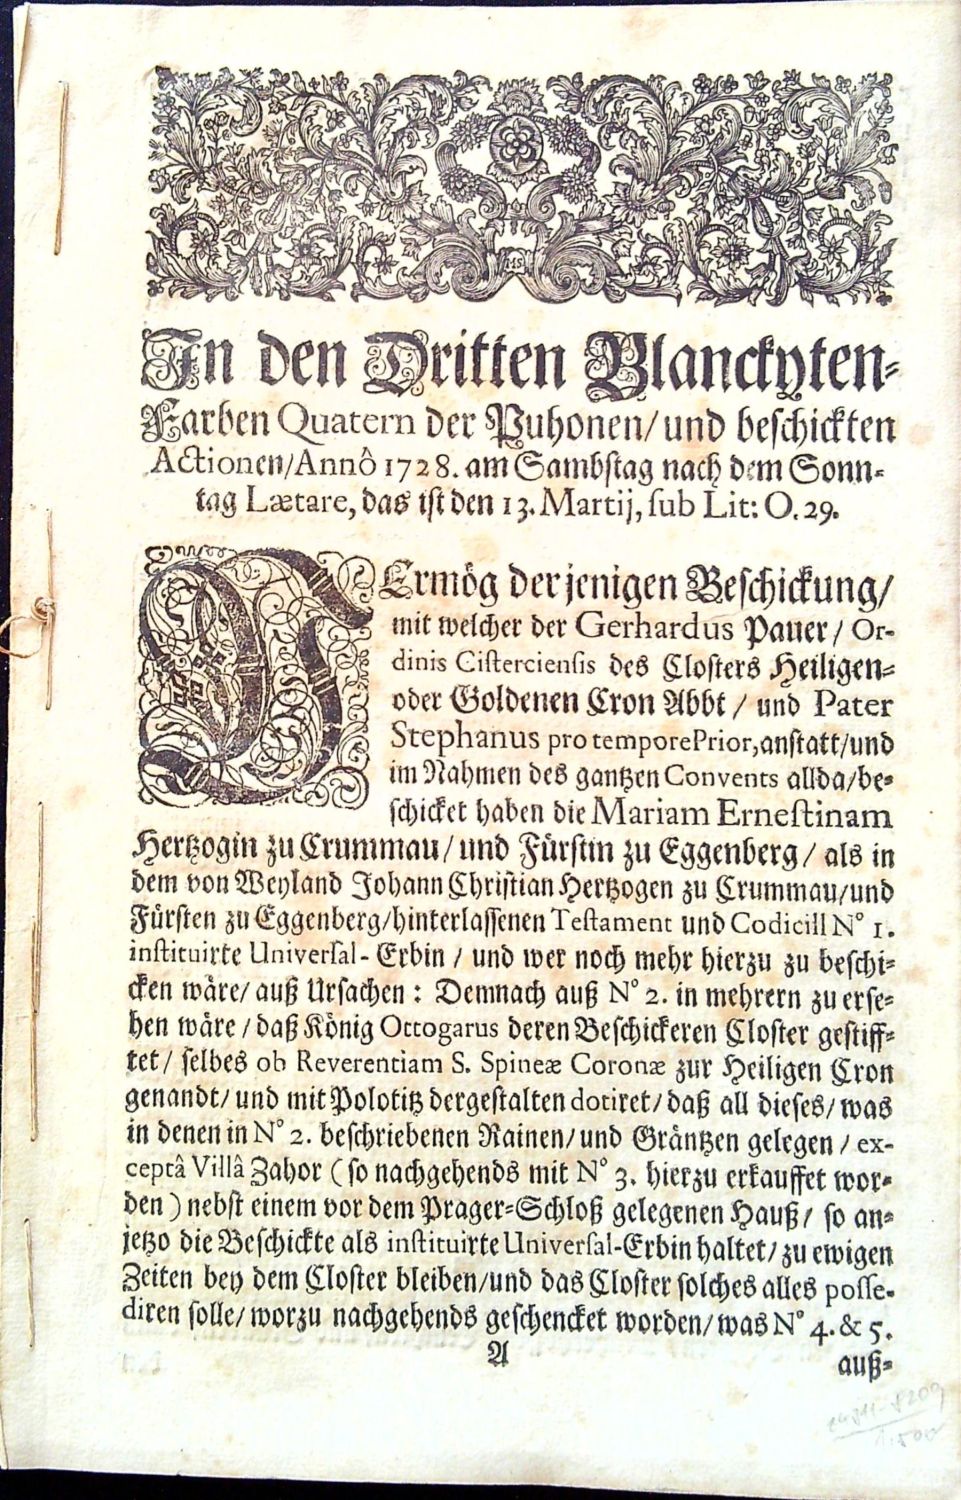 MS
In den Dritten Blanckyten-
Farben Quatern der Puhonen/ und beschickten
Actionen/Annô 1728. am Sambstag nach dem Sonn-
tag Lætare, das ist den 13. Martij, sub Lit: O. 29.
VErmög derjenigen Beschickung/
mit welcher der Gerhardus Pauer/ Or-
dinis Cisterciensis des Closters Heiligen-
oder Goldenen Cron Abbt/ und Pater
Stephanus pro tempore Prior, anstatt/und
im Nahmen des gantzen Convents allda/be-
schicket haben die Mariam Ernestinam
Hertzogin zu Crummau/ und Fürstin zu Eggenberg/ als in
dem von Weyland Johann Christian Hertzogen zu Crummau/und
Fürsten zu Eggenberg/hinterlassenen Testament und Codicill N° 1.
instituirte Universal-Erbin/ und wer noch mehr hierzu zu beschi-
cken wäre/ auß Ursachen: Demnach auß N° 2. in mehrern zu erse-
hen wäre/ daß König Ottogarus deren Beschickeren Closter gestiff-
tet/ selbes ob Reverentiam S. Spineæ Coronæ zur Heiligen Cron
genandt/ und mit Polotitz dergestalten dotiret/ daß all dieses/ was
in denen in N° 2. beschriebenen Rainen/ und Gräntzen gelegen/ ex-
ceptâ Villâ Zahor (so nachgehends mit N° 3. hierzu erkauffet wor-
den) nebst einem vor dem Prager-Schloß gelegenen Hauß/ so an-
jetzo die Beschickte als instituirte Universal-Erbin haltet/ zu ewigen
Zeiten bey dem Closter bleiben/und das Closter solches alles posse-
diren solle/ worzu nachgehends geschencket worden/ was N° 4. & 5.
A
auß-